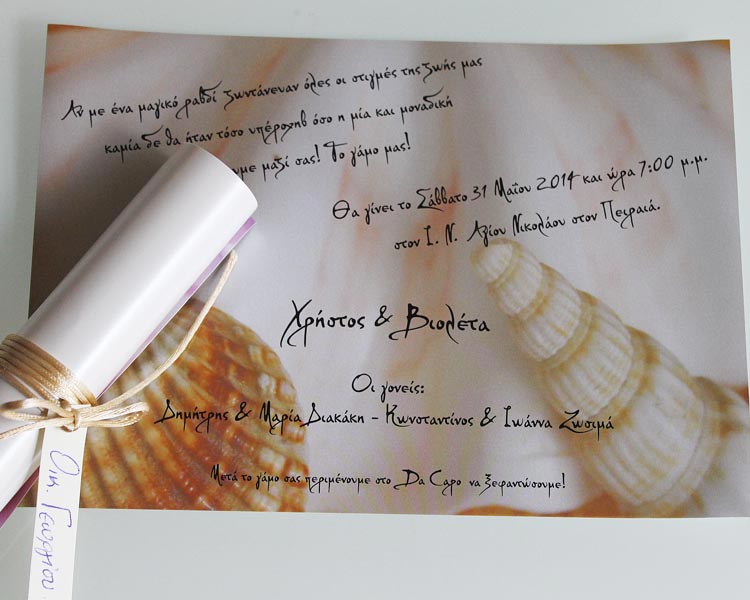 Αν με ένα μαγικό ραβδί ζωντάνευαν όλες οι στιγμές της ζωής μας
καμία δε θα ήταν τόσο υπέροχη όσο η μία και μοναδική
με μαζί σας! Το γάμο μας!
Θα γίνει το Σάββατο 31 Μαΐου 2014 και ώρα 7:00 μ.μ.
στον Ι. Ν. Αγίου Νικολάου στον Πειραιά.
Χρήστος & Βιολέτα
Οι γονείς:
Δημήτρης & Μαρία Διακάκη - Κωνσταντίνος & Ιωάννα Ζωσιμά
Μετά το γάμο σας περιμένουμε στο Da Capo να ξεφαντώσουμε!
Οικ. Γεωργίου